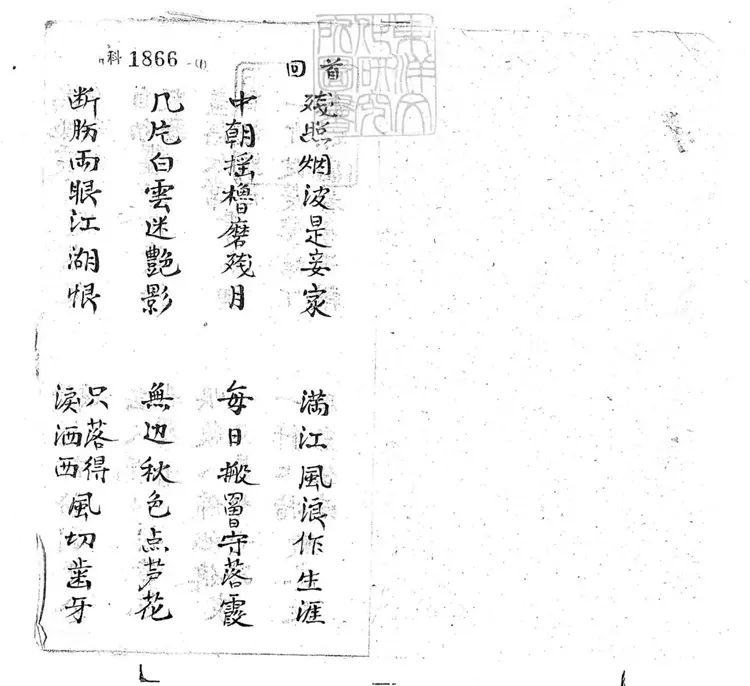 科 1866 (1)
東洋文化研究所圖書
首回
残照烟波是妾家 満江風浪作生涯
中朝揺櫓磨残月 毎日搬罾守落霞
几片白雲迷艷影 無边秋色点芦花
断肠両眼江湖恨 只落得淚洒西風切歯牙